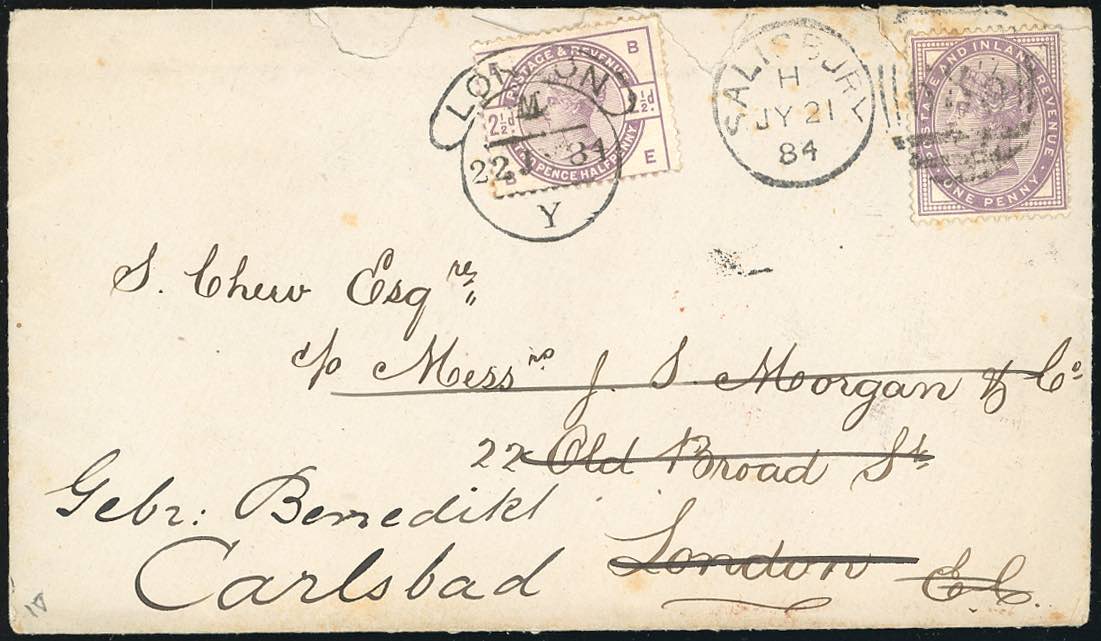 POSTAGE & REVENUE
B
2½d.
2½d.
TWOPENCE HALFPENNY
B
E
LONDON
M
22 JY 84
Y
SALISBURY
H
JY 21
84
POSTAGE AND INLAND REVENUE
ONE PENNY
S. Chew Esqre
c/o Messrs J. S. Morgan & Co
22 Old Broad St
London E.C.
Gebr: Benedikt
Carlsbad